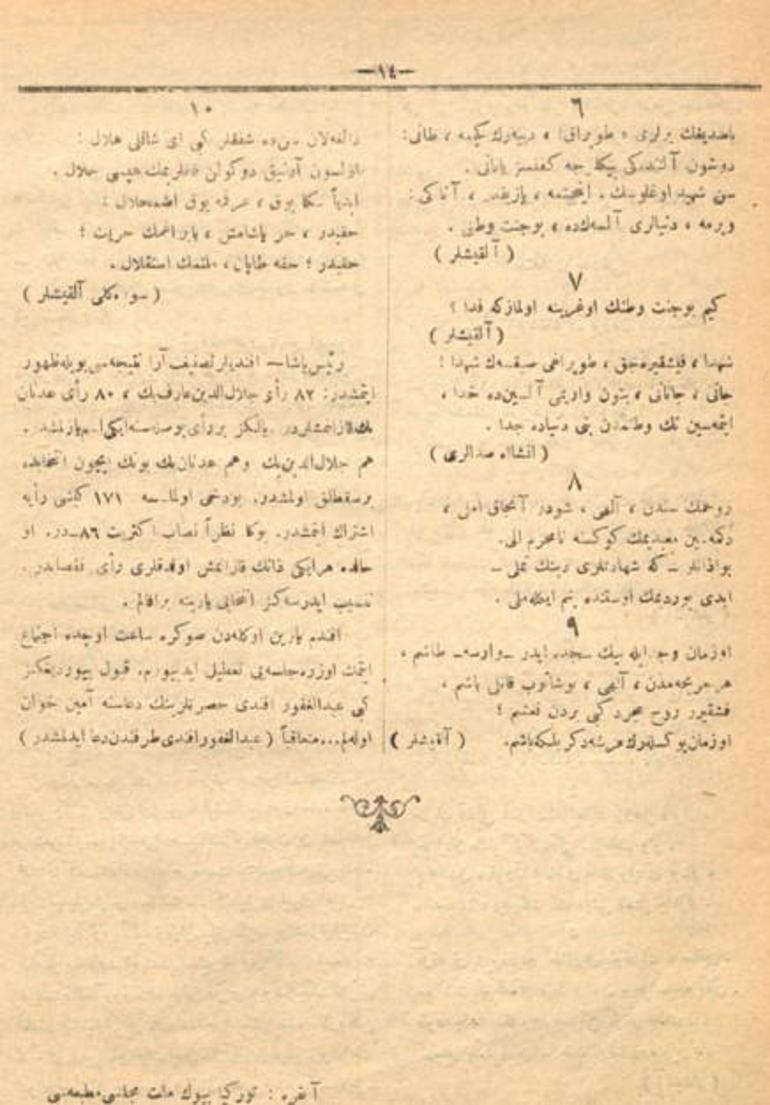 —١٤—
٦
باصديغك يرلرى « طوپراق! » دييه‌رك كچمه ، طانى:
دوشون آلتنده‌كى بيكلرجه كفنسز ياتانى .
سن شهيد اوغلوسك . اينجيتمه ، يازيقدر ، آتاكى :
ويرمه ، دنيالرى آلسه‌كده ، بو جنت وطنى .
( آلقيشلر )
٧
كيم بو جنت وطنك اوغرينه اولمازكه فدا ؟
( آلقيشلر )
شهدا ، فيشقيره‌جق ، طوپراغى صيقسه‌ك شهدا !
جانى ، جانانى ، بتون واريمى آلسين‌ده خدا ،
ايتمه‌سين تك وطنمدن بنى دنياده جدا .
( انشاالله صدالرى )
٨
روحمك سندن ، آلهى ، شودر آنجاق املى ،
دكمه‌سين معبديمك كوكسنه نامحرم الى.
بو اذانلر ــ كه شهادتلرى دينك تملى ــ
ابدى يورديمك اوستنده بنم ايكله‌ملى .
٩
او زمان وجد ايله بيك سجده ايدر ــ وارسه ــ طاشم ،
هر جريحه‌مدن ، آلهى ، بوشانوب قانلى ياشم ،
فيشقيرر روح مجرد كبى يردن نعشم ؛
او زمان يوكسله‌رك عرشه دكر بلكه باشم. ( آلقيشلر )
١٠
دالغه‌لان سن‌ده شفقلر كبى اى شانلى هلال !
اولسون آرتيق دوكولن قانلريمك هپسى حلال .
ابدياً سكا يوق ، عرقمه يوق اضمحلال :
حقيدر ، حر ياشامش ، بايراغمك حريت ؛
حقيدر ؛ حقه طاپان ، ملتمك استقلال .
( سوره‌كلى آلقيشلر )
رئيس پاشا — افنديلر تصنيف آرا نتيجه‌سى بويله ظهور
ايتمشدر: ٨٢ رأى جلال‌الدين عارف بك ، ٨٠ رأى عدنان
بك قزانمشلردر. يالكز بر رأى پوصله‌سنه ايكى اسم يازلمشدر.
هم جلال‌الدين بك وهم عدنان بك بونك ايچون انتخابده
اولمشدر. بودخى اولماسه ١٧١ كيشى رأيه
اشتراك ايتمشدر. بوكا نظراً نصاب اكثريت ٨٦ در. او
حالده هر ايكى ذاتك قازانمش اولدقلرى رأى نقصاندر.
تنسيب ايدرسه‌كز انتخابى يارينه براقالم .
افندم يارين اوكله‌دن صوكره ساعت اوچده اجتماع
ايتمك اوزره جلسه‌يى تعطيل ايدييورم. قبول بيورديغكز
كبى عبدالغفور افندى حضرتلرينك دعاسنه آمين خوان
اوله‌لم... متعاقباً ( عبدالغفور افندى طرفندن دعا ايدلمشدر )
آنقره : توركيا بيوك ملت مجلسى مطبعه‌سى